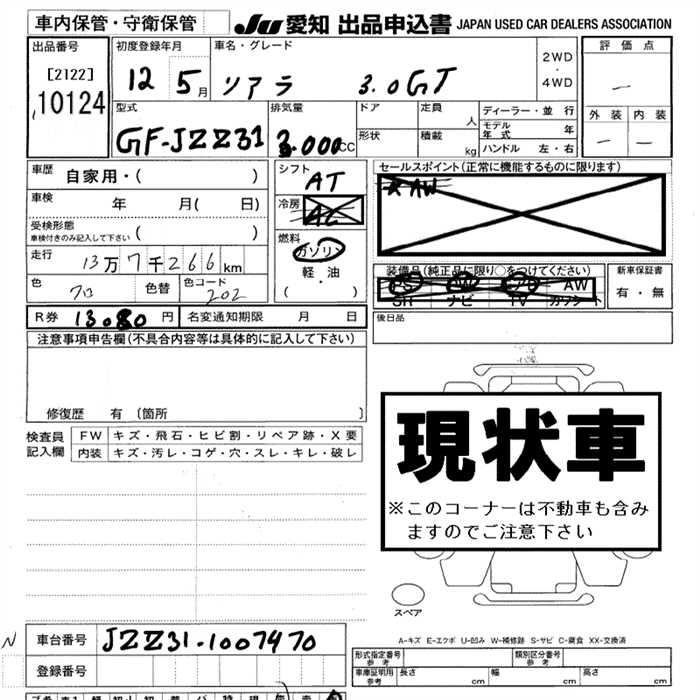 車内保管・守衛保管
JU 愛知 出品申込書 JAPAN USED CAR DEALERS ASSOCIATION
出品番号 初度登録年月 車名・グレード 2WD・4WD 評価点
[2122] 10124
12 5月 ソアラ 3.0GT
型式 排気量 ドア 定員 人 ディーラー・並行
GF-JZZ31 3.000cc 形状 積載 kg モデル年式 年
ハンドル 左・右
外装 内装
車歴 自家用・( )
シフト AT
セールスポイント(正常に機能するものに限ります)
AW
車検 年 月( 日)
冷房 AC
受検形態 車検付きのみ記入して下さい ( )
燃料 ガソリン 軽・油 ( )
走行 13万7千266km
装備品(純正品に限り○をつけてください)
PS PW AW
SR ナビ TV カワシート
新車保証書 有・無
色 クロ 色替 色コード 202
後日品
R券 13080円 名変通知期限 月 日
注意事項申告欄(不具合内容等は具体的に記入して下さい)
修復歴 有 〔箇所 〕
検査員記入欄 FW キズ・飛石・ヒビ割・リペア跡・X要
内装 キズ・汚レ・コゲ・穴・スレ・キレ・破レ
現状車
※このコーナーは不動車も含み
ますのでご注意下さい
スペア
A-キズ E-エクボ U-凹み W-補修跡 S-サビ C-腐食 XX-交換済
N 車台番号 JZZ31-1007470
登録番号
形式指定番号 参考 類別区分番号 参考
車庫証明用 参考 長さ 幅 高さ